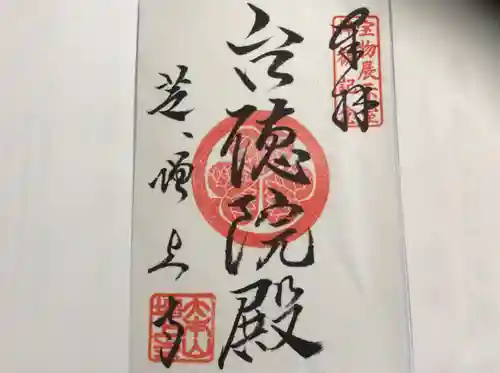 奉拝
宝物展示室
台徳院殿
芝、増上寺